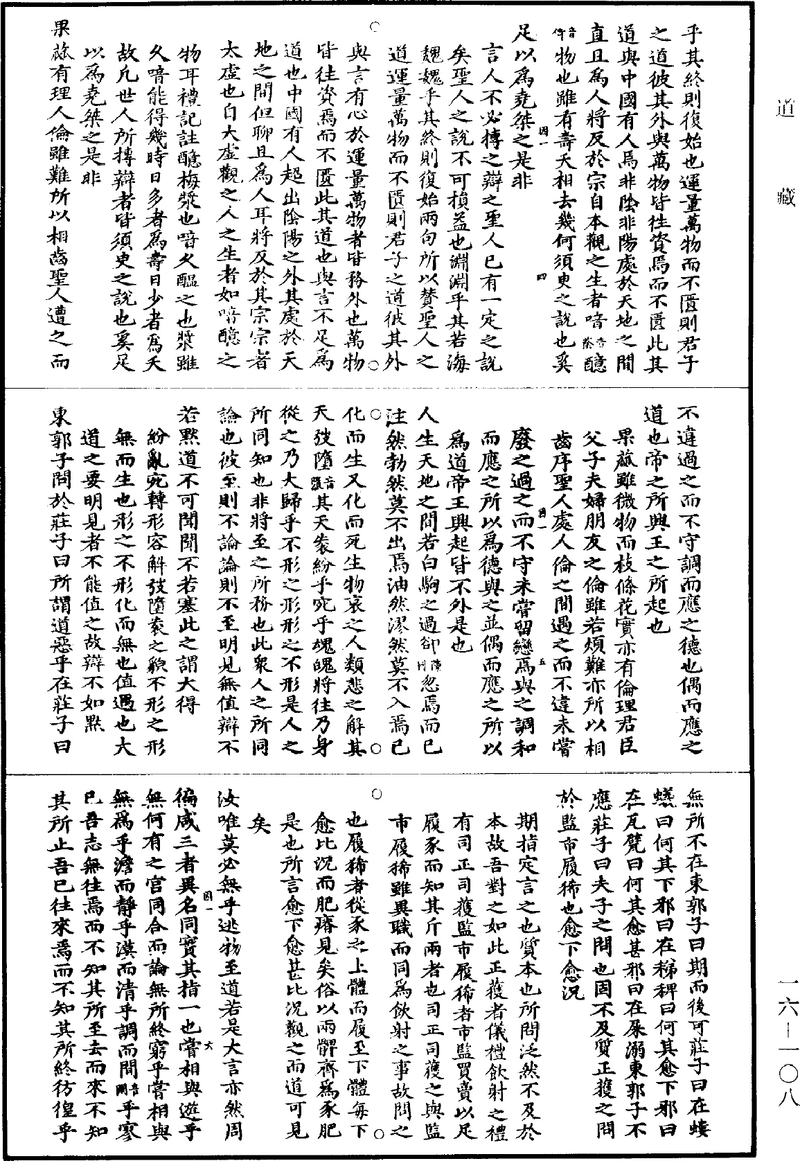 道藏
乎其終則復始也運量萬物而不匱則君子
之道彼其外與萬物皆往資焉而不匱此其
道與中國有人焉非陰非陽處於天地之間
直且爲人將反於宗自本觀之生者喑音蔭醷
音倚物也雖有壽夭相去幾何須臾之說也奚
足以爲堯桀之是非
言人不必摶之辯之聖人已有一定之說
矣聖人之說不可損益也淵淵乎其若海
魏魏乎其終則復始兩句所以賛聖人之
道運量萬物而不匱則君子之道彼其外
與言有心於運量萬物者皆務外也萬物
皆往資焉而不匱此其道也與言不足爲
道也中國有人超出陰陽之外其處於天
地之間但聊且爲人耳將反於其宗宗者
太虛也自大虛觀之人之生者如喑醷之
物耳禮記註醷梅漿也喑久醞之也漿雖
久喑能得幾時日多者爲壽日少者爲夭
故凡世人所摶辯者皆須臾之說也奚足
以爲堯桀之是非
果蓏有理人倫雖難所以相齒聖人遭之而
不違過之而不守調而應之德也偶而應之
道也帝之所興王之所起也
果蓏雖微物而枝條花實亦有倫理君臣
父子夫婦朋友之倫雖若煩難亦所以相
齒序聖人處人倫之間遇之而不違未嘗
廢之過之而不守未嘗留戀焉與之調和
而應之所以爲德與之並偶而應之所以
爲道帝王興起皆不外是也
人生天地之間若白駒之過郤隙同忽焉而已
注然勃然莫不出焉油然漻然莫不入焉已
化而生又化而死生物哀之人類悲之解其
天弢墮其天袠紛乎宛乎魂魄將往乃身
從之乃大歸乎不形之形形之不形是人之
所同知也非將至之所務也此衆人之所同
論也彼至則不論論則不至明見無值辯不
若默道不可聞聞不若塞此之謂大得
紛亂宛轉形容解弢墮袠之貌不形之形
無而生也形之不形化而無也值遇也大
道之要明見者不能值之故辯不如默
東郭子問於莊子曰所謂道惡乎在莊子曰
無所不在東郭子曰期而後可莊子曰在螻
蟻曰何其下邪曰在稊稗曰何其愈下邪曰
在瓦甓曰何其愈甚邪曰在屎溺東郭子不
應莊子曰夫子之問也固不及質正獲之問
於監市履狶也愈下愈況
期指定言之也質本也所問泛然不及於
本故吾對之如此正獲者儀禮飲射之禮
有司正司獲監市履狶者市監買賣以足
履豕而知其斤兩者也司正司獲之與監
市履狶雖異職而同爲飲射之事故問之
也履狶者從豕之上體而履至下體每下
愈比況而肥瘠見矣俗以兩髀齊爲豕肥
是也所言愈下愈甚比況觀之而道可見
矣
汝唯莫必無乎逃物至道若是大言亦然周
徧咸三者異名同實其指一也嘗相與遊乎
無何有之宮同合而論無所終窮乎嘗相與
無爲乎澹而靜乎漠而清乎調而間音閑乎寥
已吾志無往焉而不知其所至去而來不知
其所止吾已往來焉而不知其所終彷徨乎
一六—一〇八